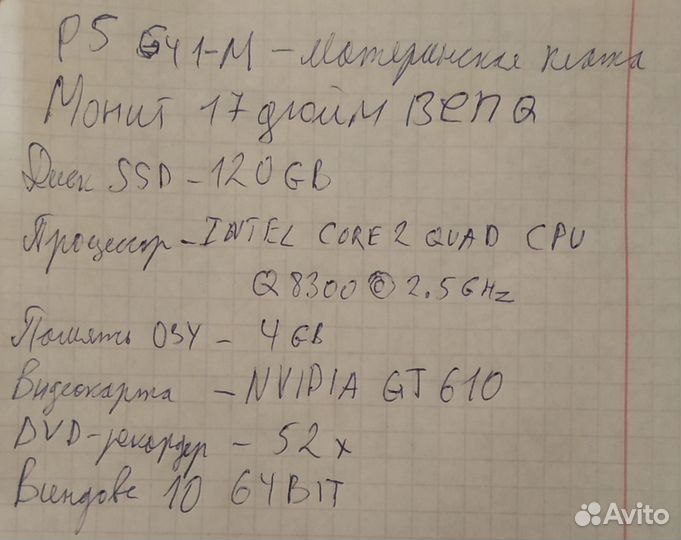 P5 G41-M - материнская плата
Монит 17 дюйм BENQ
Диск SSD - 120 GB
Процессор - INTEL CORE 2 QUAD CPU
Q 8300 @ 2.5 GHz
Память ОЗУ - 4 GB
Видеокарта - NVIDIA GT 610
DVD-рекордер - 52 x
Виндовс 10 64 BIT
Avito